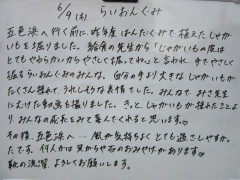 6/9(木) らいおんぐみ
五色浜へ行く前に、昨年度はんたぐみで植えたじゃが
いもを掘りました。給食の先生から「じゃがいもの皮は
とてもやわらかいからやさしく掘ってね」と言われ、手でやさしく
掘るらいおんぐみのみんな。自分の手より大きなじゃがいもが
たくさん採れて、うれしそうな表情でした。みんなで、みき先生
にむけた手の気も掘りました。きっと、じゃがいもが採れたことより
みんなの成長をみて喜んでくれると思います。
その後、五色浜へ… 風が気持ちよくとても過ごしやすか。
たです。何人かは貝がらや石のおみやげがあります。
靴の洗濯、よろしくお願いします。